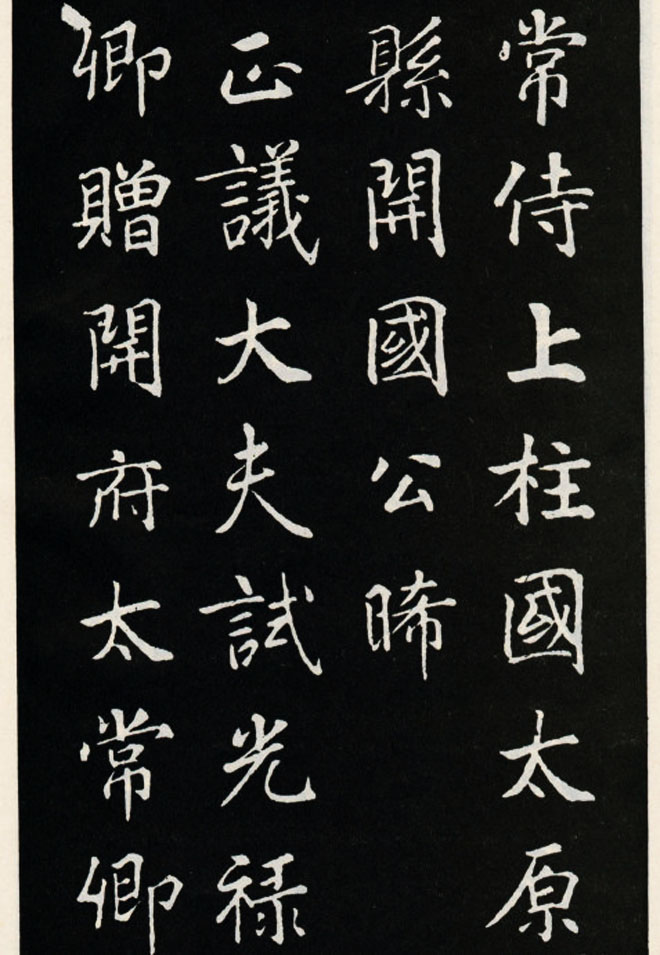 常侍上柱國太原
縣開國公晞
正議大夫試光禄
卿贈開府太常卿